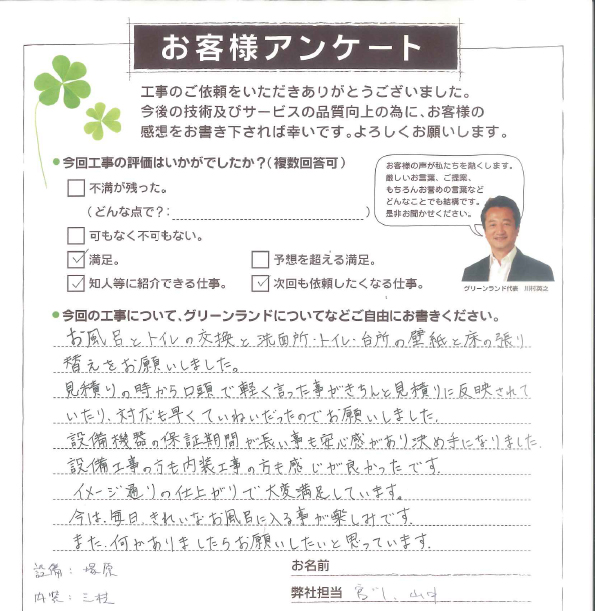 お客様アンケート
工事のご依頼をいただきありがとうございました。
今後の技術及びサービスの品質向上の為に、お客様の
感想をお書き下されば幸いです。よろしくお願いします。
●今回工事の評価はいかがでしたか？（複数回答可）
不満が残った。
（どんな点で？：　）
可もなく不可もない。
満足。
予想を超える満足。
知人等に紹介できる仕事。
次回も依頼したくなる仕事。
お客様の声が私たちを動くします。
厳しいお言葉、ご提案、
もちろんお誉めの言葉など
どんなことでも結構です。
是非お聞かせください。
グリーンランド代表　川村英之
●今回の工事について、グリーンランドについてなどご自由にお書きください。
お風呂とトイレの交換と洗面所・トイレ・台所の壁紙と床の張り
替えをお願いしました。
見積りの時から口頭で軽く言った事がきちんと見積りに反映されて
いたり、対応も早くていねいだったのでお願いしました。
設備機器の保証期間が長い事も安心感があり決め手になりました。
設備工事の方も内装工事の方も感じが良かったです。
イメージ通りの仕上がりで大変満足しています。
今は、毎日、きれいなお風呂に入る事が楽しみです。
また、何かありましたらお願いしたいと思っています。
設備：塚原
内装：三枝
お名前
弊社担当